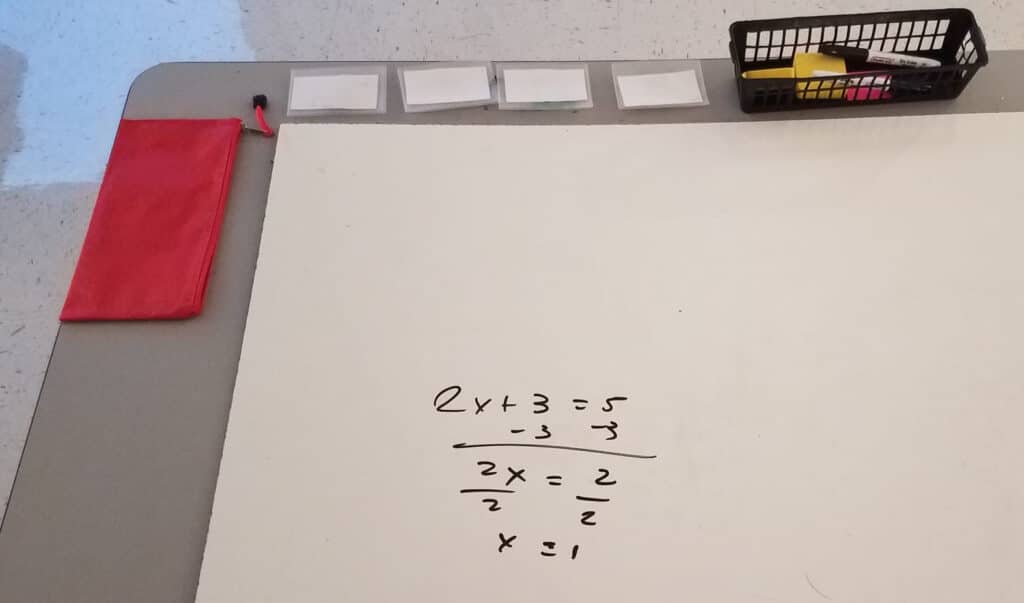 2x + 3 = 5
- 3 - 3
2x = 2
2 2
x = 1